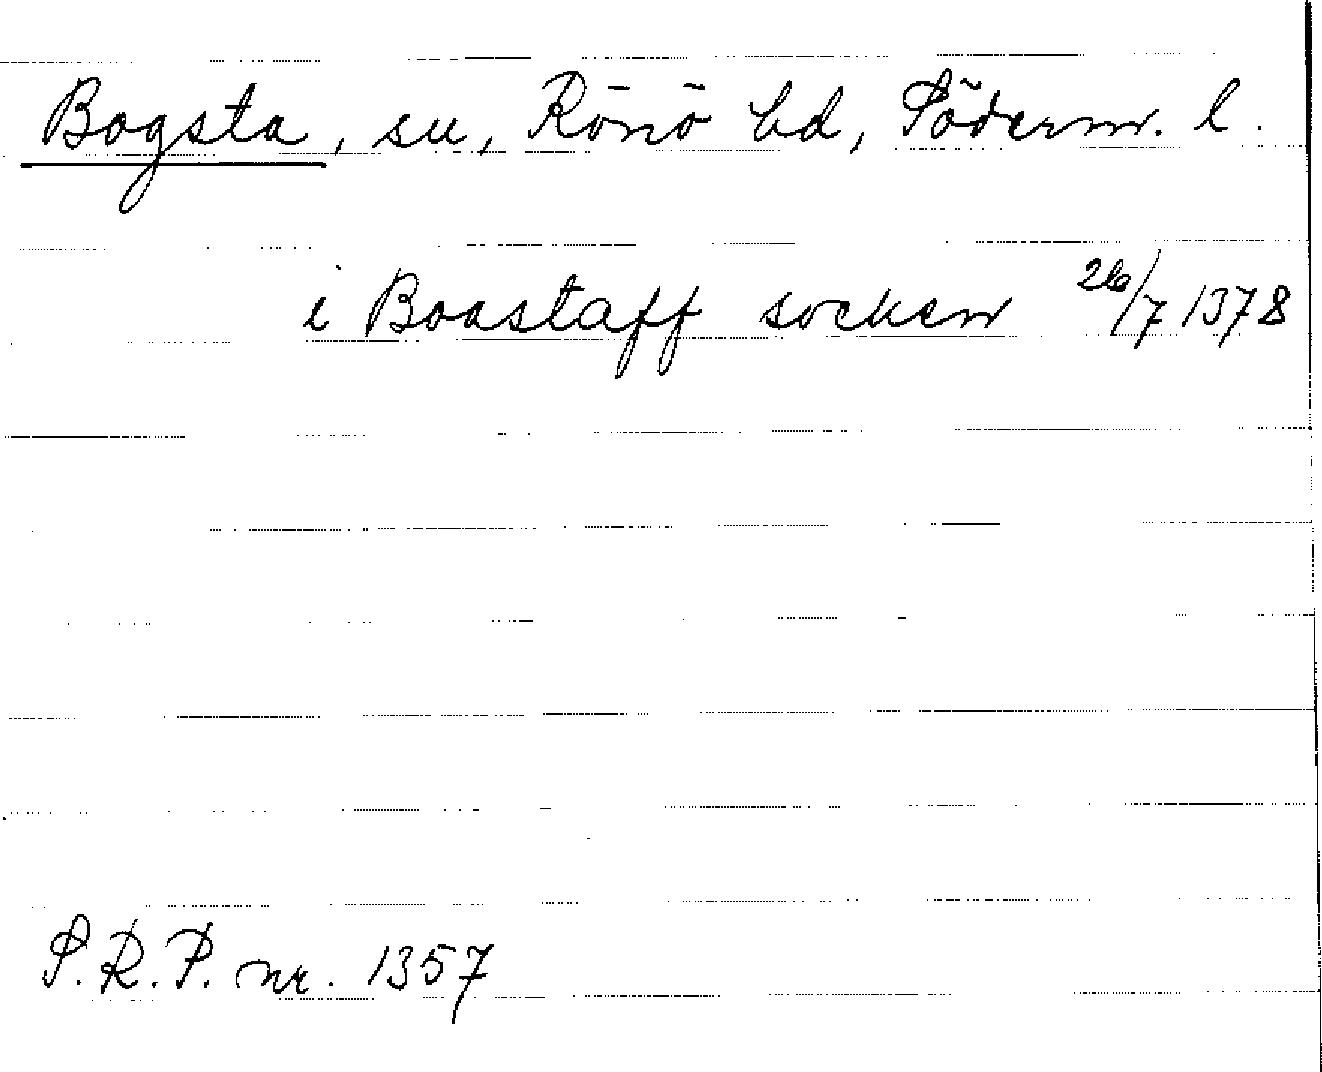 Bogsta, sn, Rönö hd, Söderm. l.
i Boastaff socken 26/7 1378
S.R.P. nr. 1357